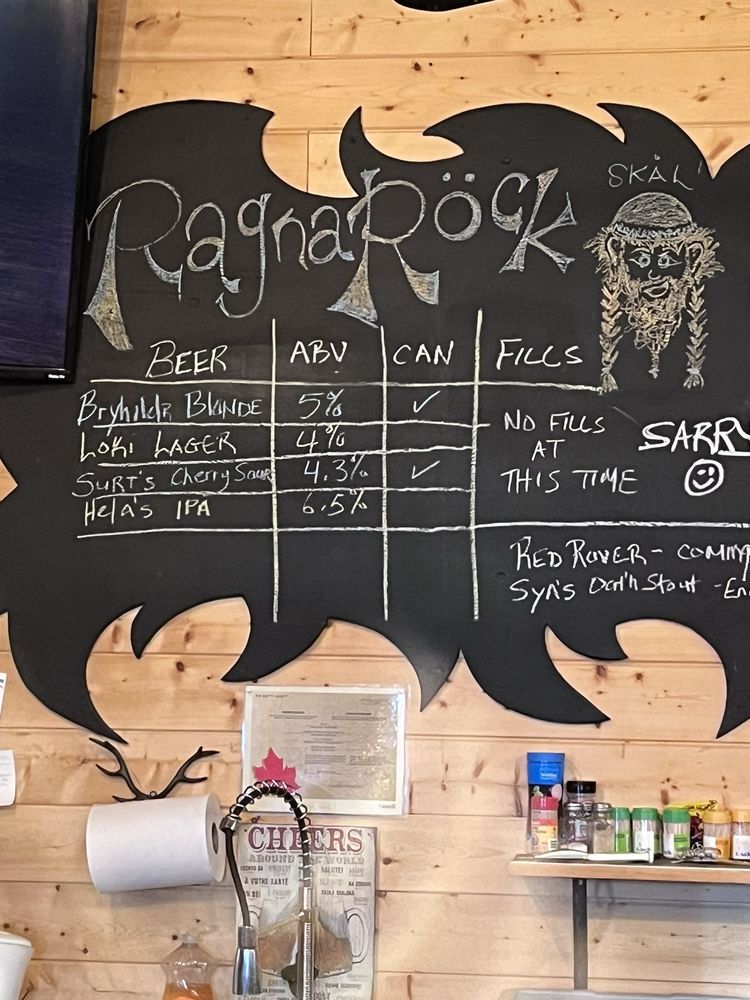 RagnaRöck
SKÅL
BEER ABV CAN FILLS
Bryhildr Blonde 5% ✓
Loki LAGER 4%
SURT'S Cherry Sour 4.3% ✓
Hela's IPA 6.5%
NO FILLS
AT
THIS TIME
SARRY
RED ROVER - COMING
Syn's Dark'n Stout - En
CHEERS
AROUND THE WORLD
À VOTRE SANTÉ